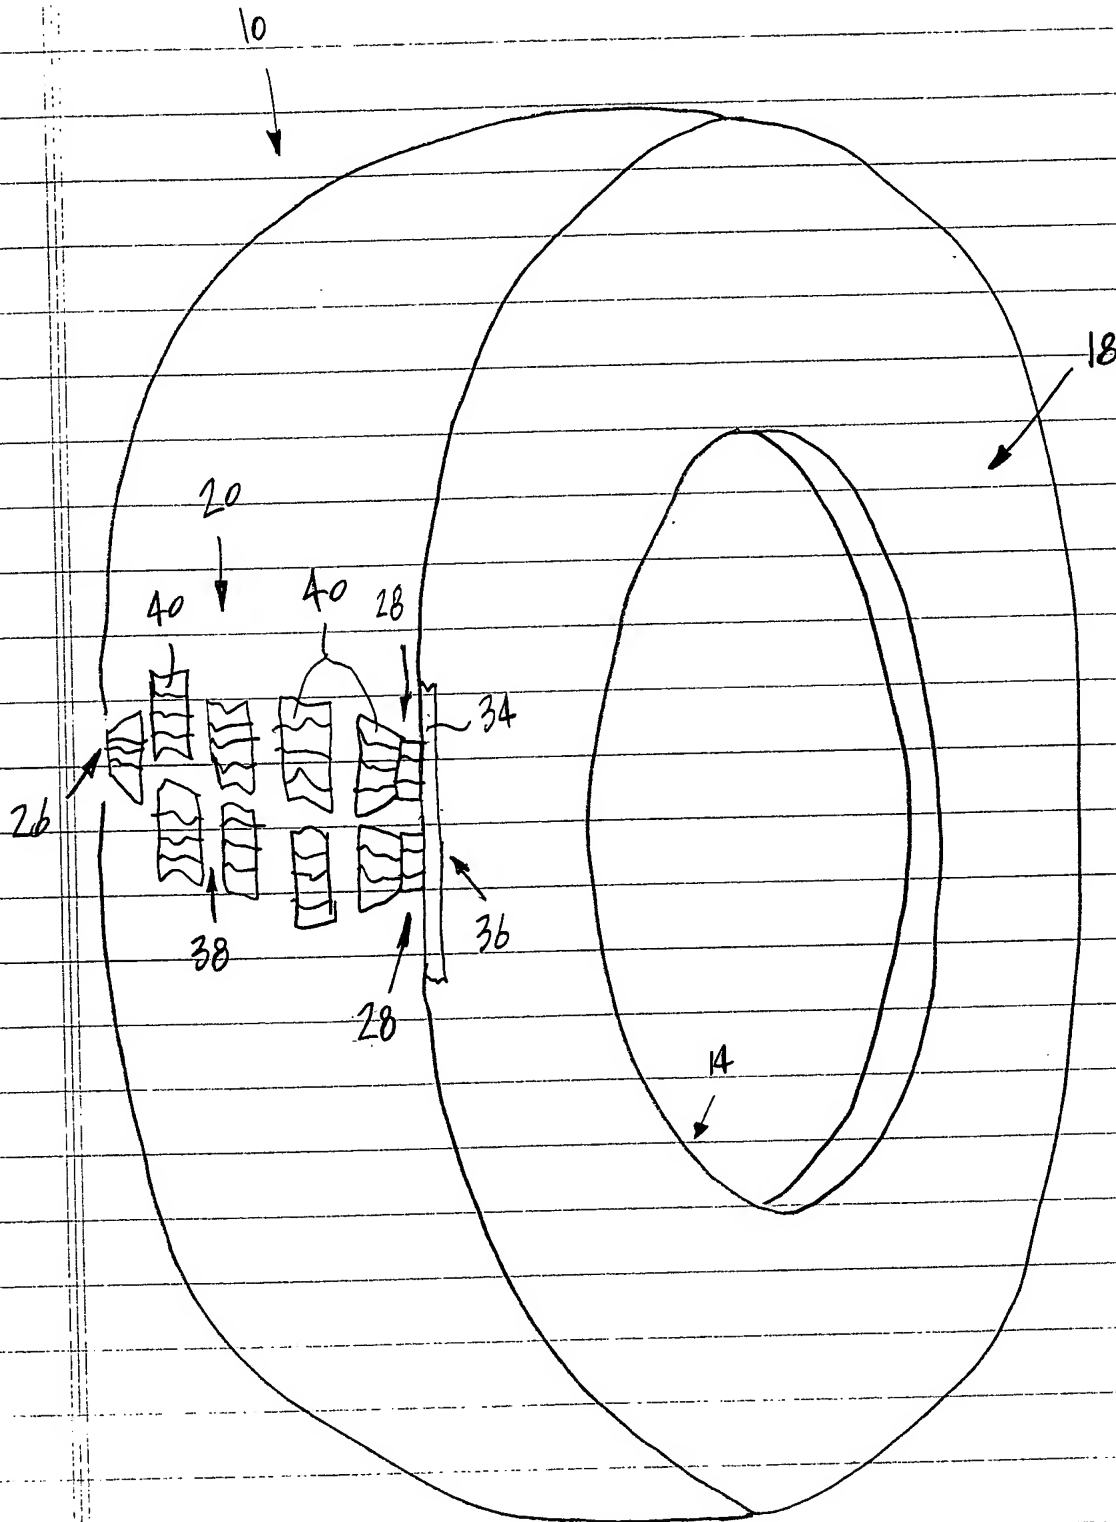 10
18
20
40
40
28
34
26
38
36
28
14